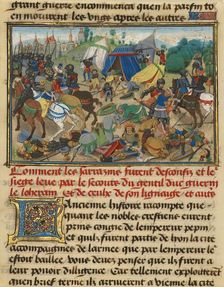 grant guerre encommenca quen la paix mo
en moururent les ungs apres les autres
Comment les sarrasins furent desconfis et le
siege leue par le secours du gentil duc guerin
le loherain et de ceulx de son lignaige et aut
Ancienne histoire racompte que
quant les nobles crestiens eurent
prins congie de lempereur pepin
et quilz furent partis de bon la cite
acompaigniez de larmee que par lempereur le
estoit baillee Vous deuez penser que ilz firent
pouoir dilligence Car tellement exploitterent
que brief terme ilz arriuerent a vienne la cite